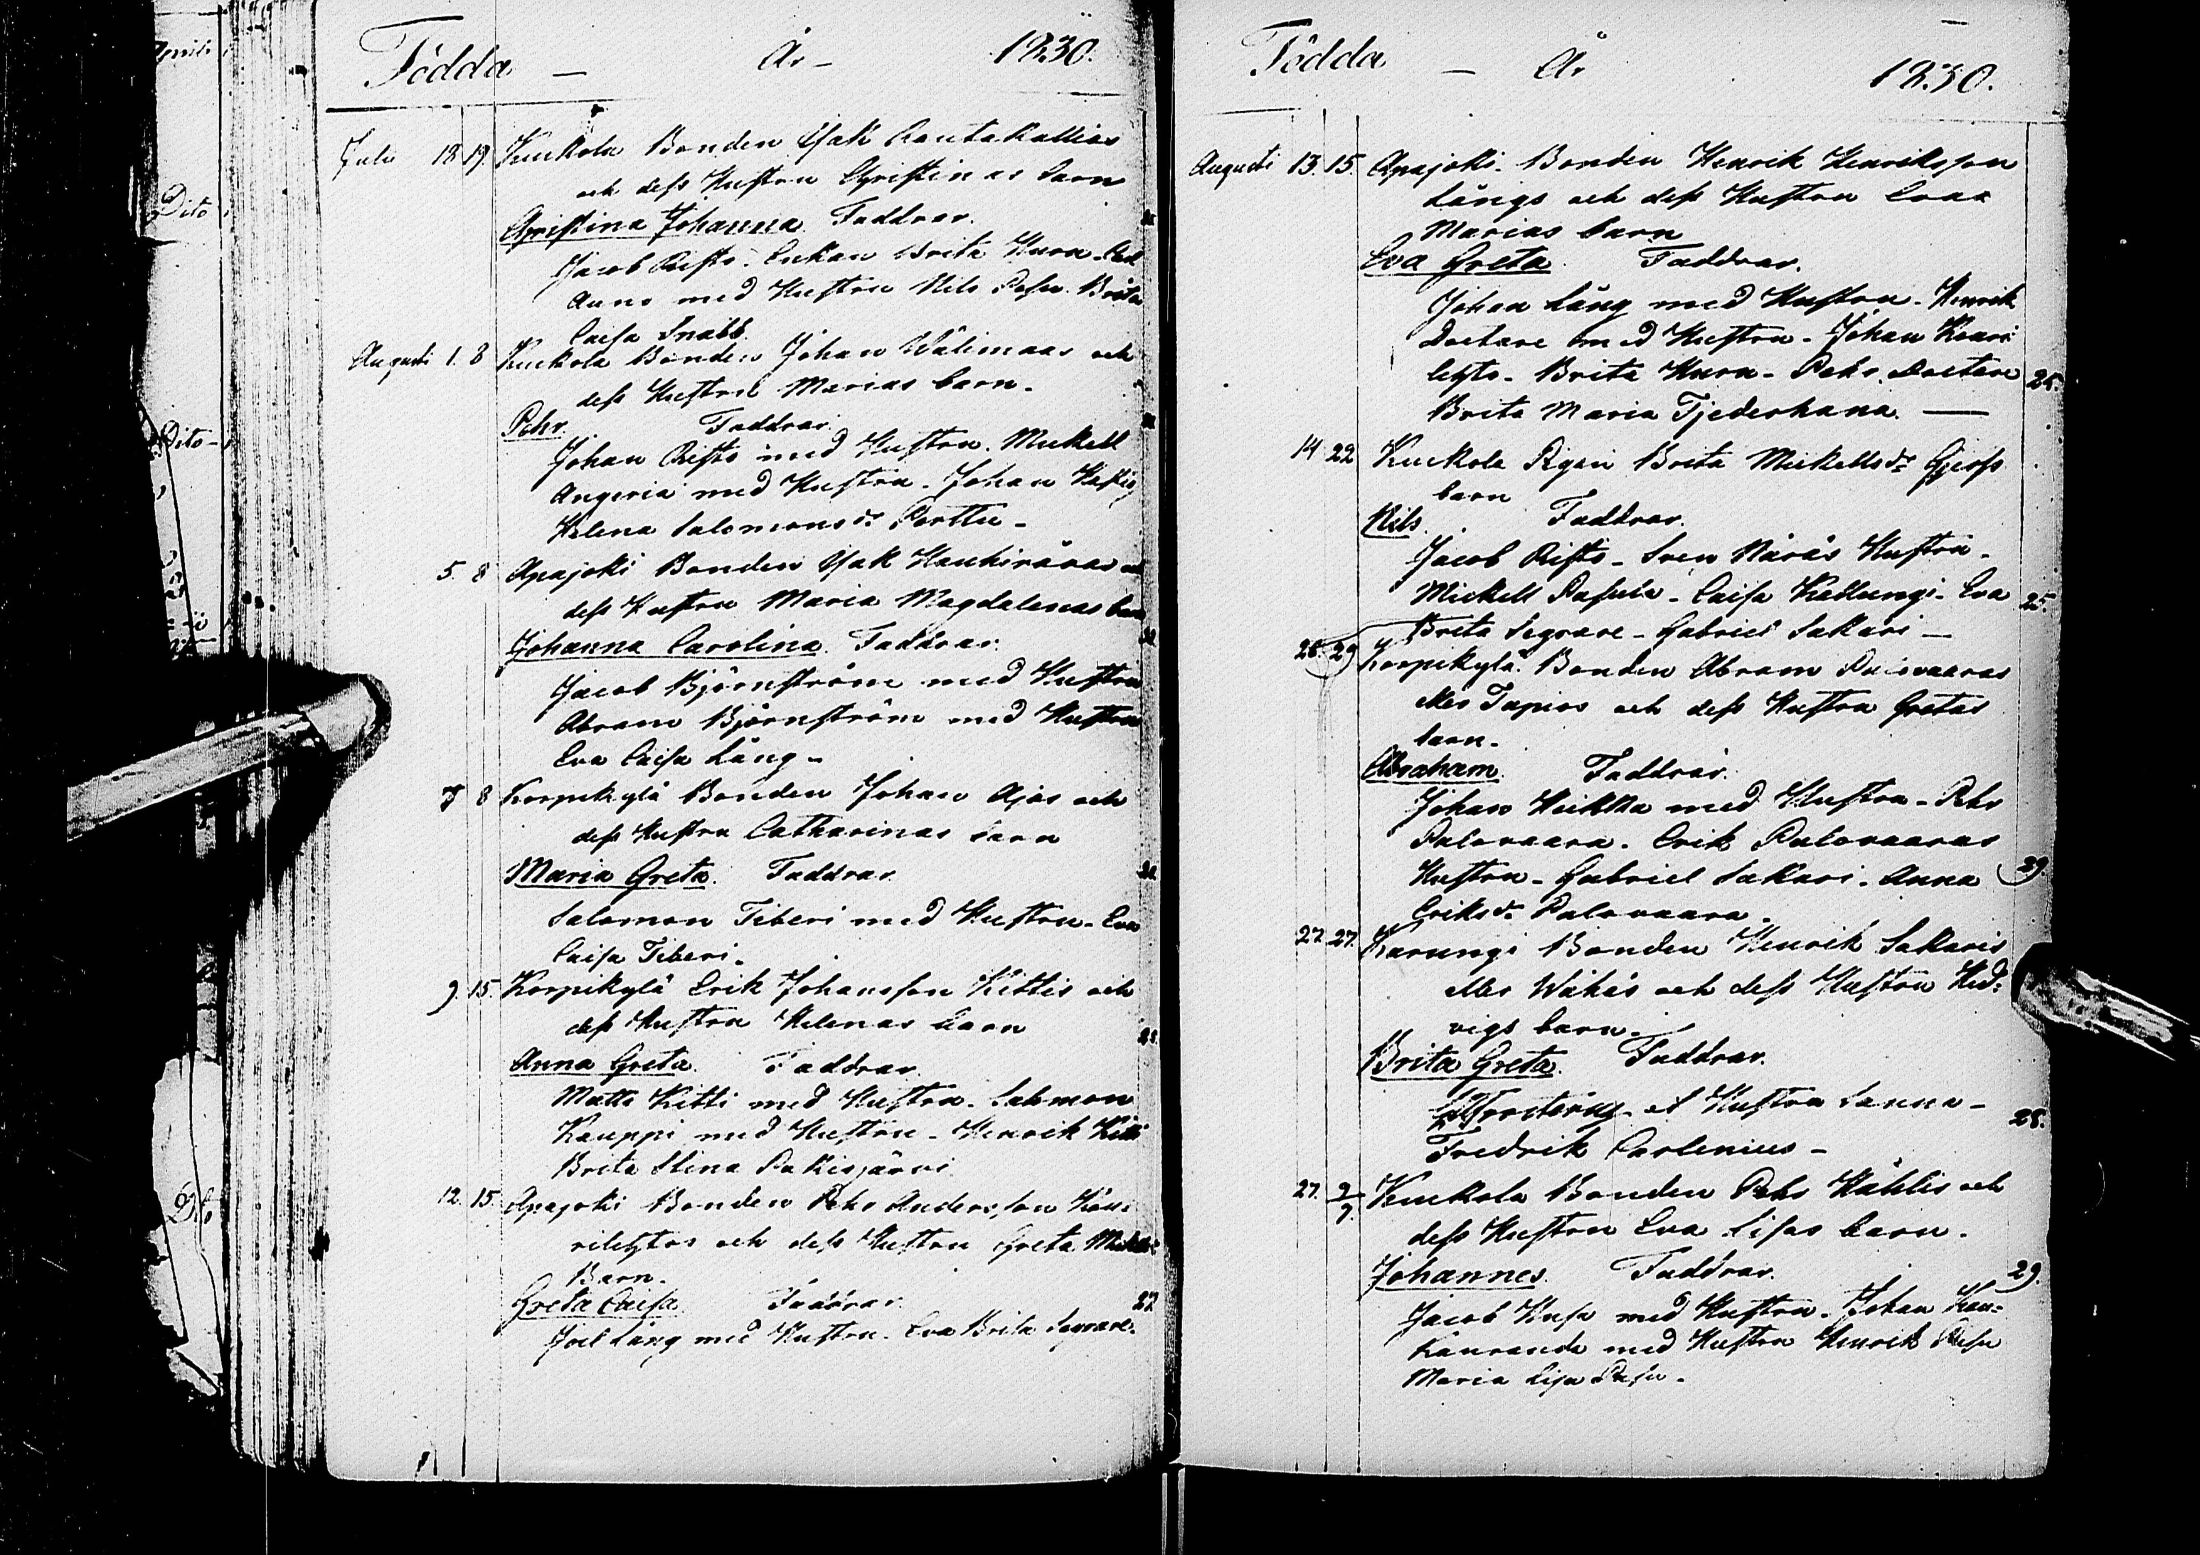 Födda — År — 1830.
Juli 18 19. Kuckola Bonden Isak Rautakallios
och dess Hustru Christinas barn
Christina Johanna. Faddrar.
Jacob Risto. Enkan Brita Kura.
Anno med Hustru Nils Pasu. Brita
Caisa Snabb.
Augusti 1. 8 Kuckola Bonden Johan Wälimaas och
dess Hustru Marias barn.
Pehr. Faddrar.
Johan Risto med Hustru. Mickell
Angeria med Hustru. Johan
Helena Salomonsdr Perttu.
5. 8 Apajoki Bonden Isak Haukiväras
dess Hustru Maria Magdalenas barn
Johanna Carolina. Faddrar.
Jacob Björnström med Hustru
Abram Björnström med Hustru
Eva Caisa Lång.
7 8 Korpikylä Bonden Johan Ajos och
dess Hustru Catharinas barn
Maria Greta. Faddrar
Salomon Tiberi med Hustru. Eva
Caisa Tiberi.
9. 15. Korpikylä Erik Johansson Kittis och
dess Hustru Helenas barn
Anna Greta. Faddrar
Matts Kitti med Hustru. Salomon
Kauppi med Hustru. Henrik Kitti
Brita Stina Pakisjärvi
12. 15. Apajoki Bonden Pehr Andersson
och dess Hustru Greta
Barn.
Greta Caisa. Faddrar.
Joel Lång med Hustru. Eva Brita Segrare.
Födda — År 1830.
Augusti 13. 15. Apajoki. Bonden Henrik Henriksson
Långs och dess Hustru Eva
Marias barn
Eva Greta. Faddrar.
Johan Lång med Hustru. Henrik
Doctare med Hustru. Johan
Brita Kura. Pehr Doctare 25.
Brita Maria Tjederhana. —
14 22 Kuckola Pigan Brita Mickellsdr
barn
Nils. Faddrar.
Jacob Risto. Sven Näräs Hustru.
Mickell Pasuia. Caisa Kallungi. Eva 25.
Brita Segrare. Gabriel Sakari —
28. 29 Korpikylä. Bonden Abram Palovaaras
eller Tapios och dess Hustru Gretas
barn.
Abraham. Faddrar.
Johan med Hustru. Pehr
Palovaara. Erik Palovaaras
Hustru. Gabriel Sakari. Anna 29.
Eriksdr Palovaara.
27. 27. Karungi Bonden Henrik Sakaris
eller Wähäs och dess Hustru Hed:
vigs barn.
Brita Greta. Faddrar.
Hustru Sanna. 28.
Fredrik Carlenius —
27. 2/9. Kuckola Bonden Pehr Kählis och
dess Hustru Eva Lisas barn.
Johannes. Faddrar. 29.
Jacob Kusa med Hustru. Johan Kau:
kauranda med Hustru Henrik Pasu
Maria Lisa Pasu.